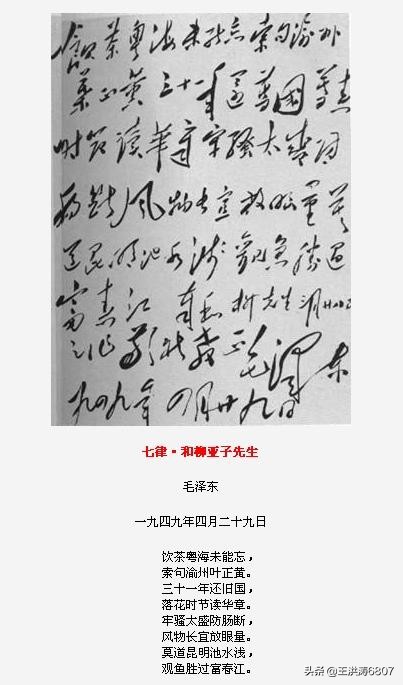 飲茶粤海未能忘索句渝州
葉正黄三十一年還舊國落花
时节读華章牢騷太盛防
腸斷風物长宜放眼量莫
道昆明池水浅觀魚勝过
富春江 奉和柳先生三月廿八日
之作敬祈教正 毛澤东
一九四九年四月廿九日
七律·和柳亚子先生
毛泽东
一九四九年四月二十九日
饮茶粤海未能忘，
索句渝州叶正黄。
三十一年还旧国，
落花时节读华章。
牢骚太盛防肠断，
风物长宜放眼量。
莫道昆明池水浅，
观鱼胜过富春江。
头条 @王洪涛6807